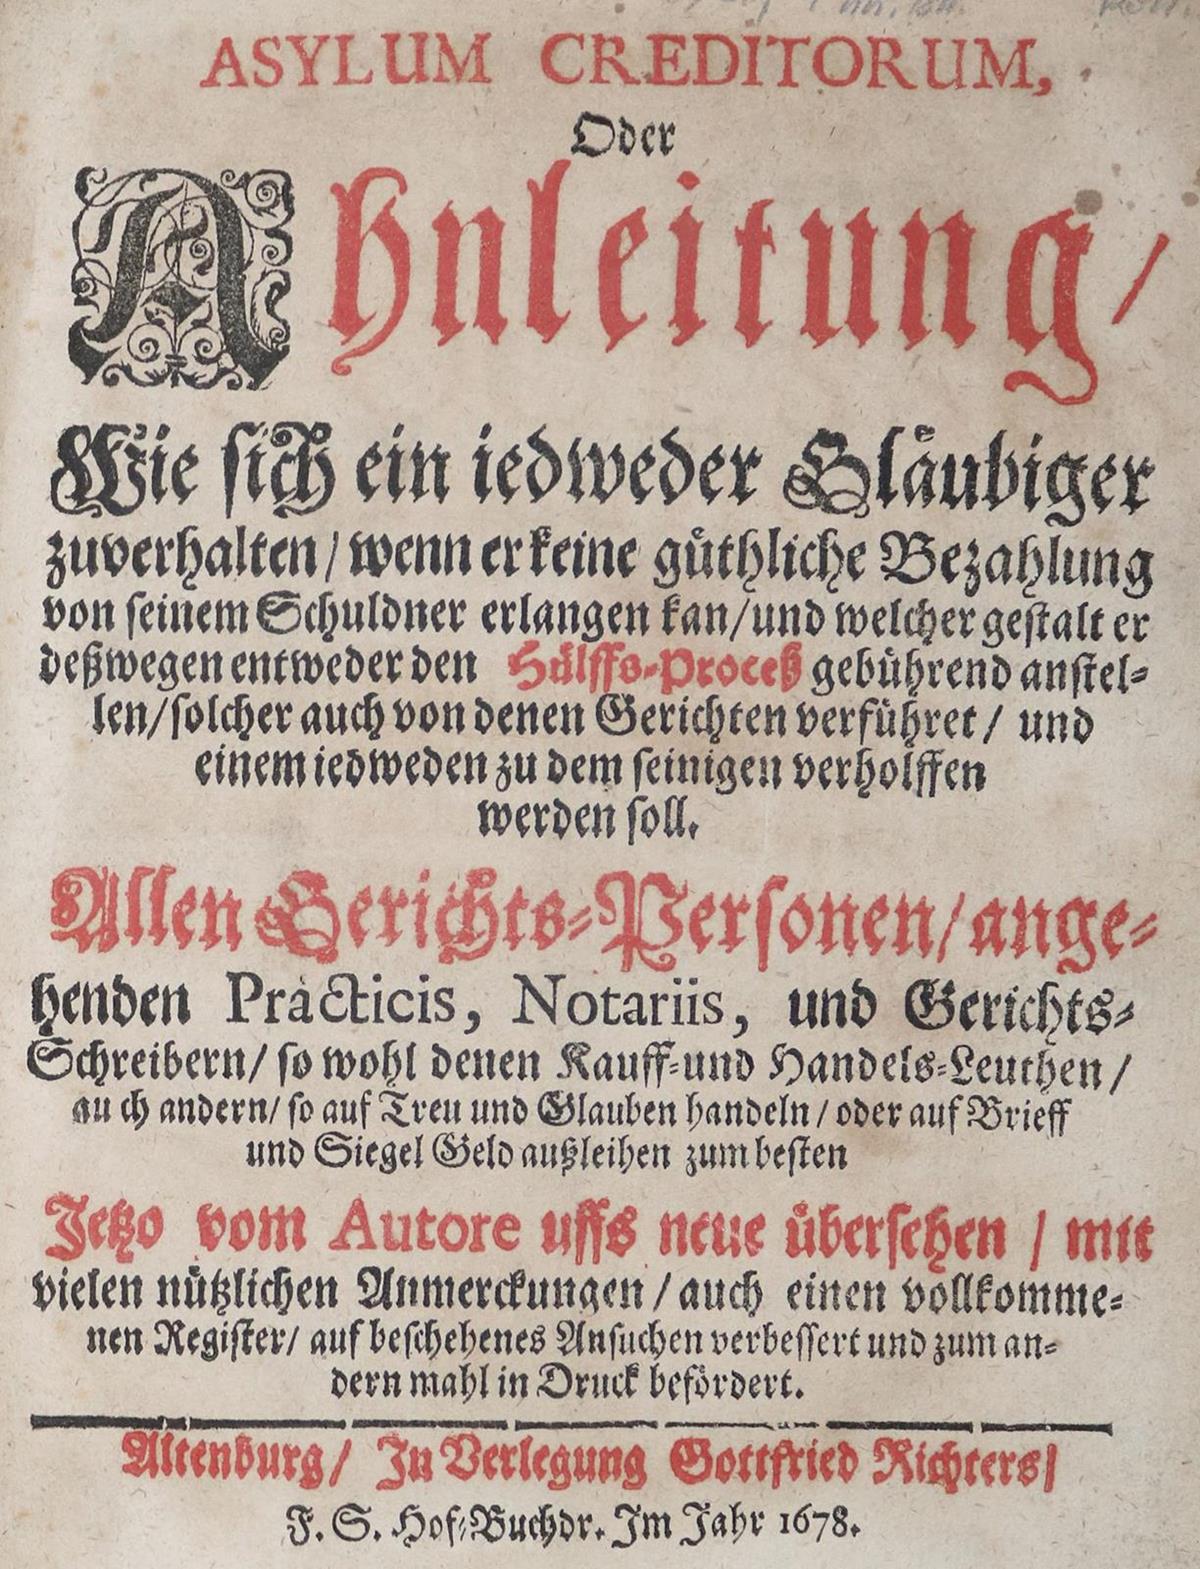 ASYLUM CREDITORUM,
Oder
Ahnleitung/
Wie sich ein iedweder Gläubiger
zuverhalten/wenn er keine güthliche Bezahlung
von seinem Schuldner erlangen kan/und welcher gestalt er
deßwegen entweder den Hülffs-Proceß gebührend anstel-
len/solcher auch von denen Gerichten verführet/ und
einem iedweden zu dem seinigen verholffen
werden soll.
Allen Gerichts-Personen/ange-
henden Practicis, Notariis, und Gerichts-
Schreibern/ so wohl denen Kauff-und Handels-Leuthen/
auch andern/ so auf Treu und Glauben handeln/ oder auf Brieff
und Siegel Geld außleihen zum besten
Jetzo vom Autore uffs neue übersehen / mit
vielen nützlichen Anmerckungen/ auch einen vollkomme-
nen Register/ auf beschehenes Ansuchen verbessert und zum an-
dern mahl in Druck befördert.
Altenburg/ In Verlegung Gottfried Richters/
F. S. Hof-Buchdr. Im Jahr 1678.